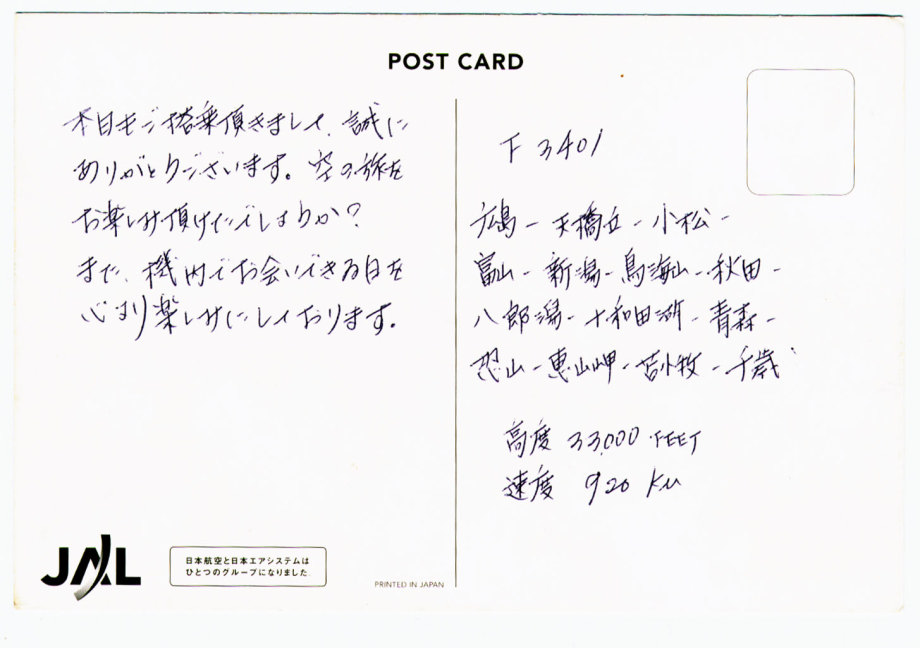 POST CARD
本日もご搭乗頂きまして、誠に
ありがとうございます。空の旅を
お楽しみ頂けたでしょうか?
また、機内でお会いできる日を
心より楽しみにしております。
F 3401
広島-天橋立-小松-
富山-新潟-鳥海山-秋田-
八郎潟-十和田湖-青森-
恐山-恵山岬-苫小牧-千歳
高度 33,000 FEET
速度 920 KM
JAL
日本航空と日本エアシステムは
ひとつのグループになりました。
PRINTED IN JAPAN